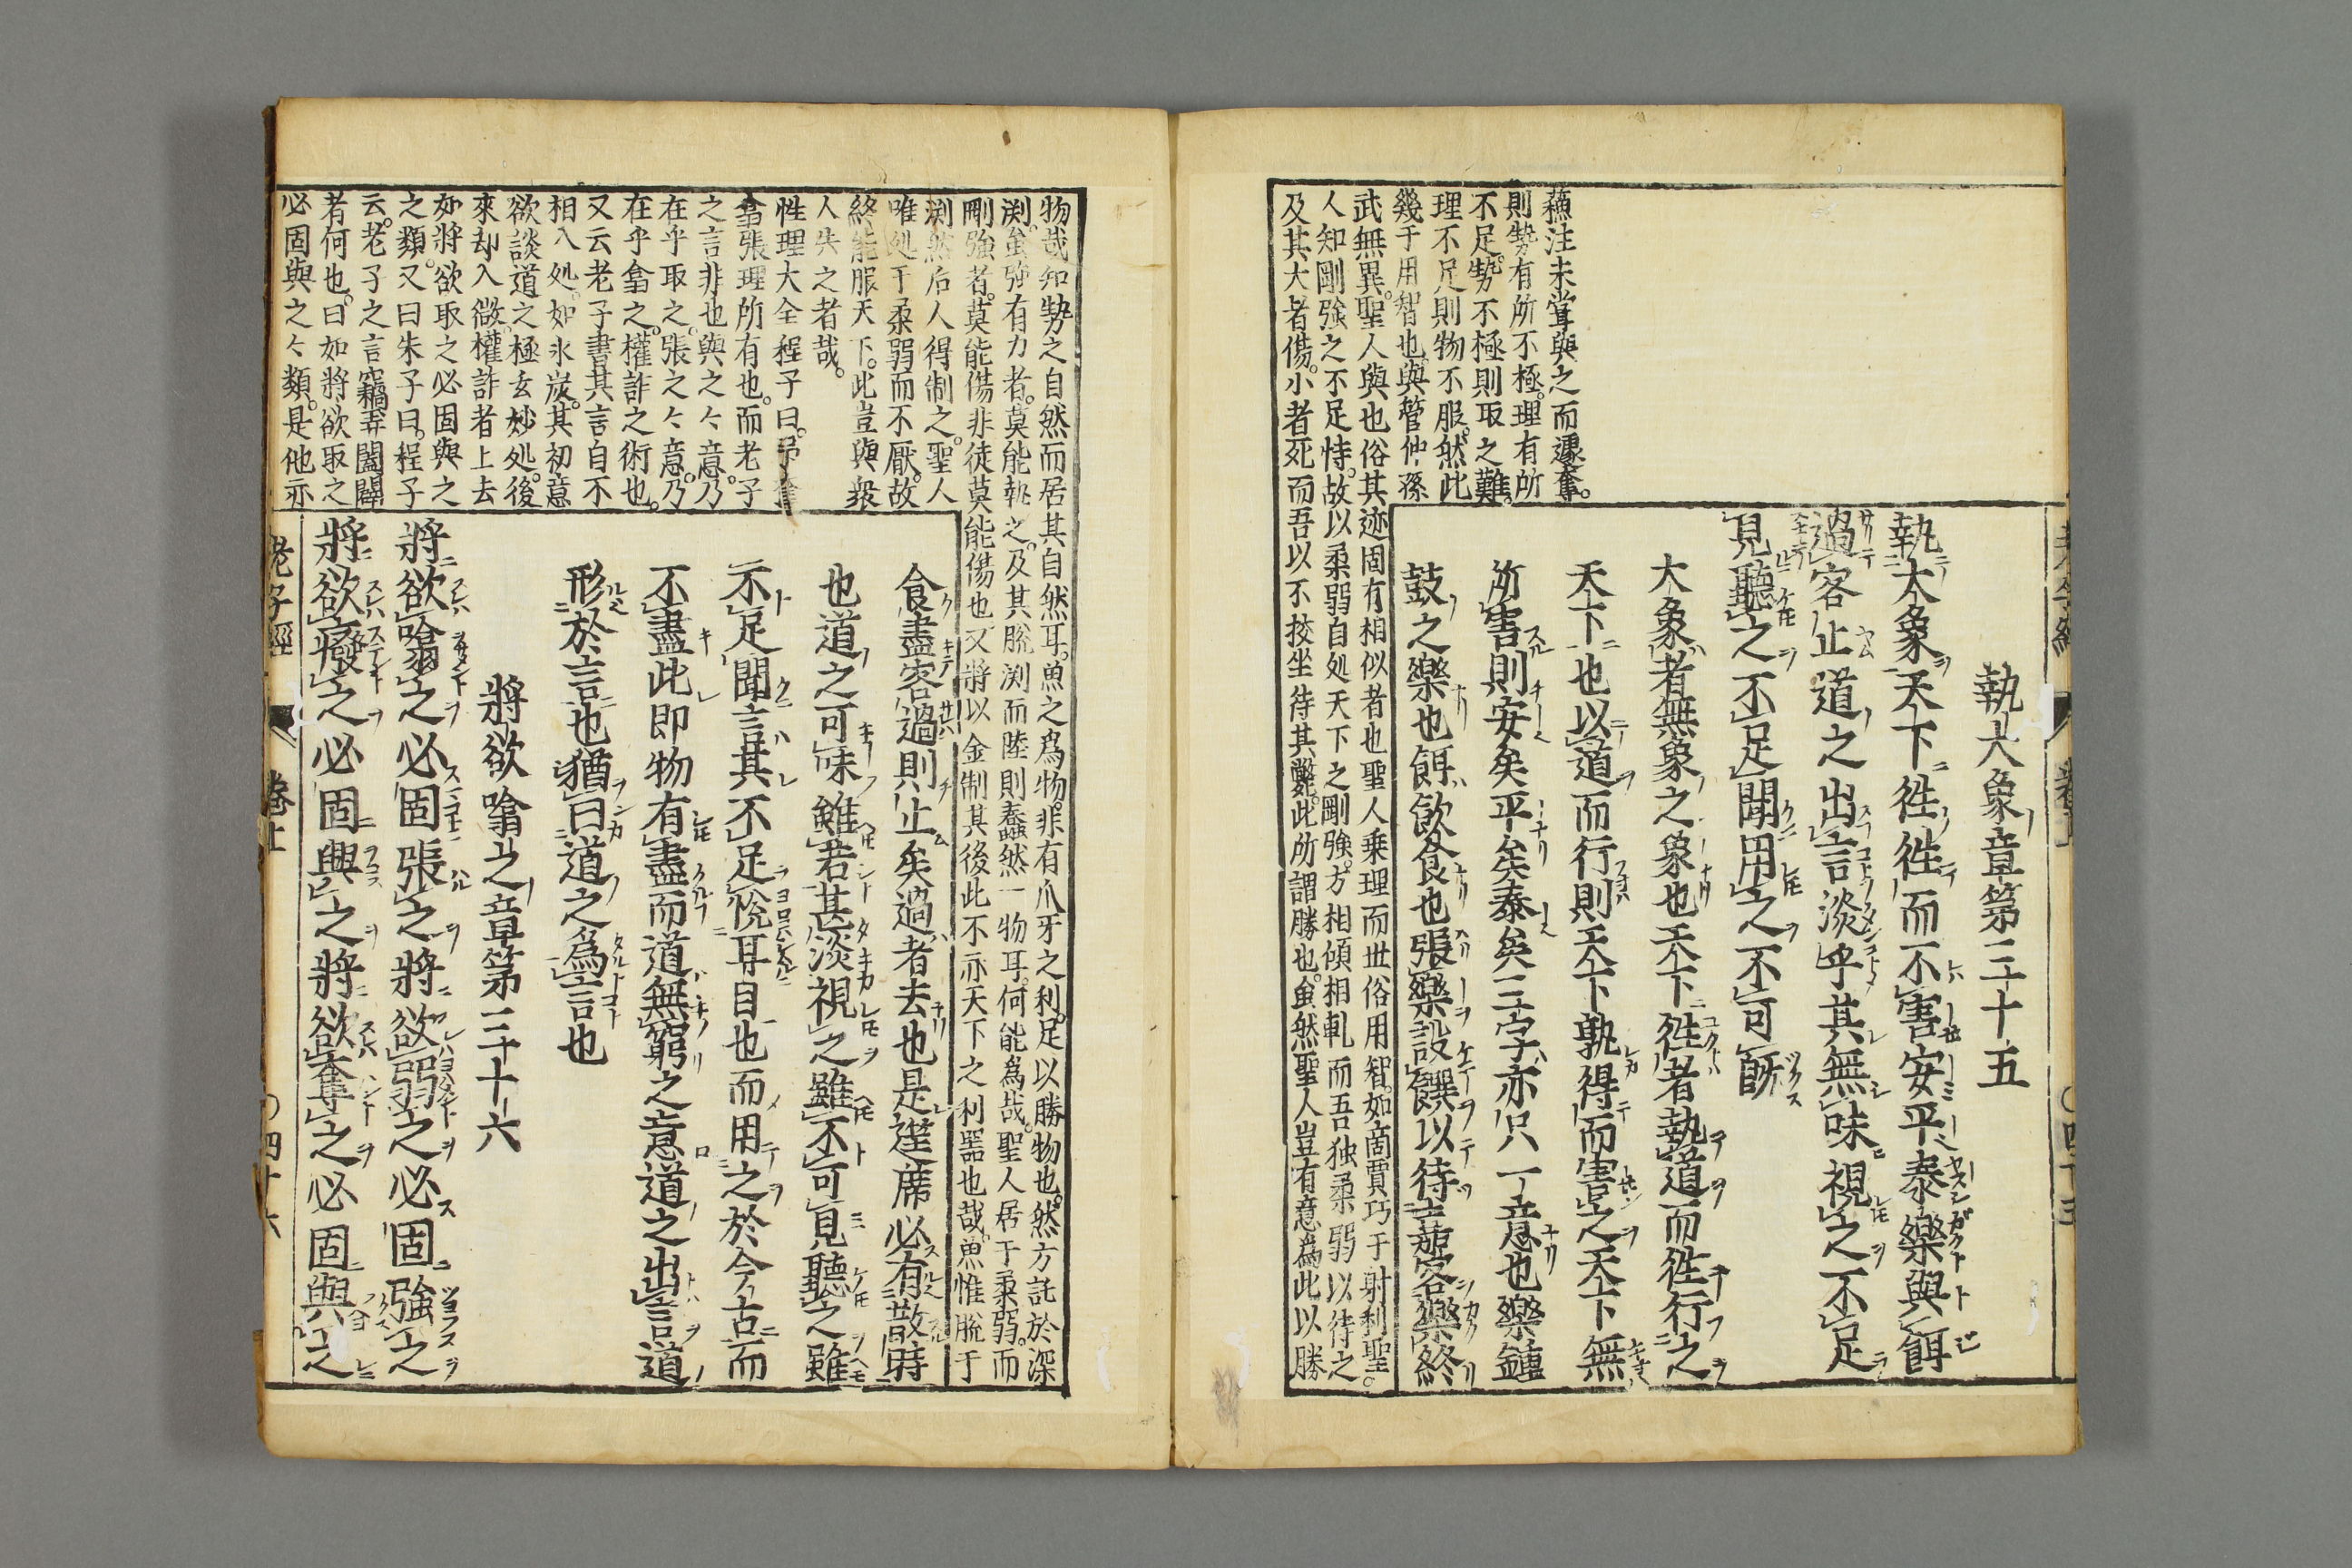 執大象章第三十五
執大象天下往往而不害安平泰樂與餌
過客止道之出言淡乎其無味視之不足
見聽之不足聞用之不可既
大象者無象之象也天下往者執道而往行之
天下也以道而行則天下孰得而害之天下無
所害則安矣平矣泰矣三字亦只一意也樂鍾
鼓之樂也餌飲食也張樂設饌以待嘉客樂終
蘓注未甞與之而遽奪
則勢有所不極理有所
不足勢不極則取之難
理不足則物不服然此
幾于用智也與管仲孫
武無異聖人與也俗其迹固有相似者也聖人乗理而世俗用智如商賈巧于射利聖
人知剛強之不足恃故以柔弱自処天下之剛強方相傾相軋而吾独柔弱以待之
及其大者傷小者死而吾以不挍坐待其斃此所謂勝也虽然聖人豈有意為此以勝
物哉知勢之自然而居其自然耳魚之為物非有爪牙之利足以勝物也然方託於深
渕虽強有力者莫能執之及其脱渕而陸則蠢然一物耳何能為哉聖人居于柔弱而
剛強者莫能傷非徒莫能傷也又將以金制其後此不亦天下之利噐也哉魚惟脱于
渕然后人得制之聖人
唯処于柔弱而不厭故
終能服天下此豈與衆
人失之者哉
性理大全程子曰予奪
翕張理所有也而老子
之言非也與之々意乃
在乎取之張之々意乃
在乎翕之權詐之術也
又云老子書其言自不
相入処如氷炭其初意
欲談道之極玄妙処後
來却入做權詐者上去
如將欲取之必固與之
之類又曰朱子曰程子
云老子之言竊弄闔闢
者何也曰如將欲取之
必固與之々類是他亦
食盡客過則止矣過者去也是筵席必有散時
也道之可味雖若甚淡視之雖不可見聽之雖
不足聞言其不足悅耳目也而用之於今古而
不盡此即物有盡而道無窮之意道之出言道
形於言也猶曰道之為言也
將欲噏之章第三十六
將欲噏之必固張之將欲弱之必固強之
將欲廢之必固興之將欲奪之必固與之
老子經　卷上　〇四十六